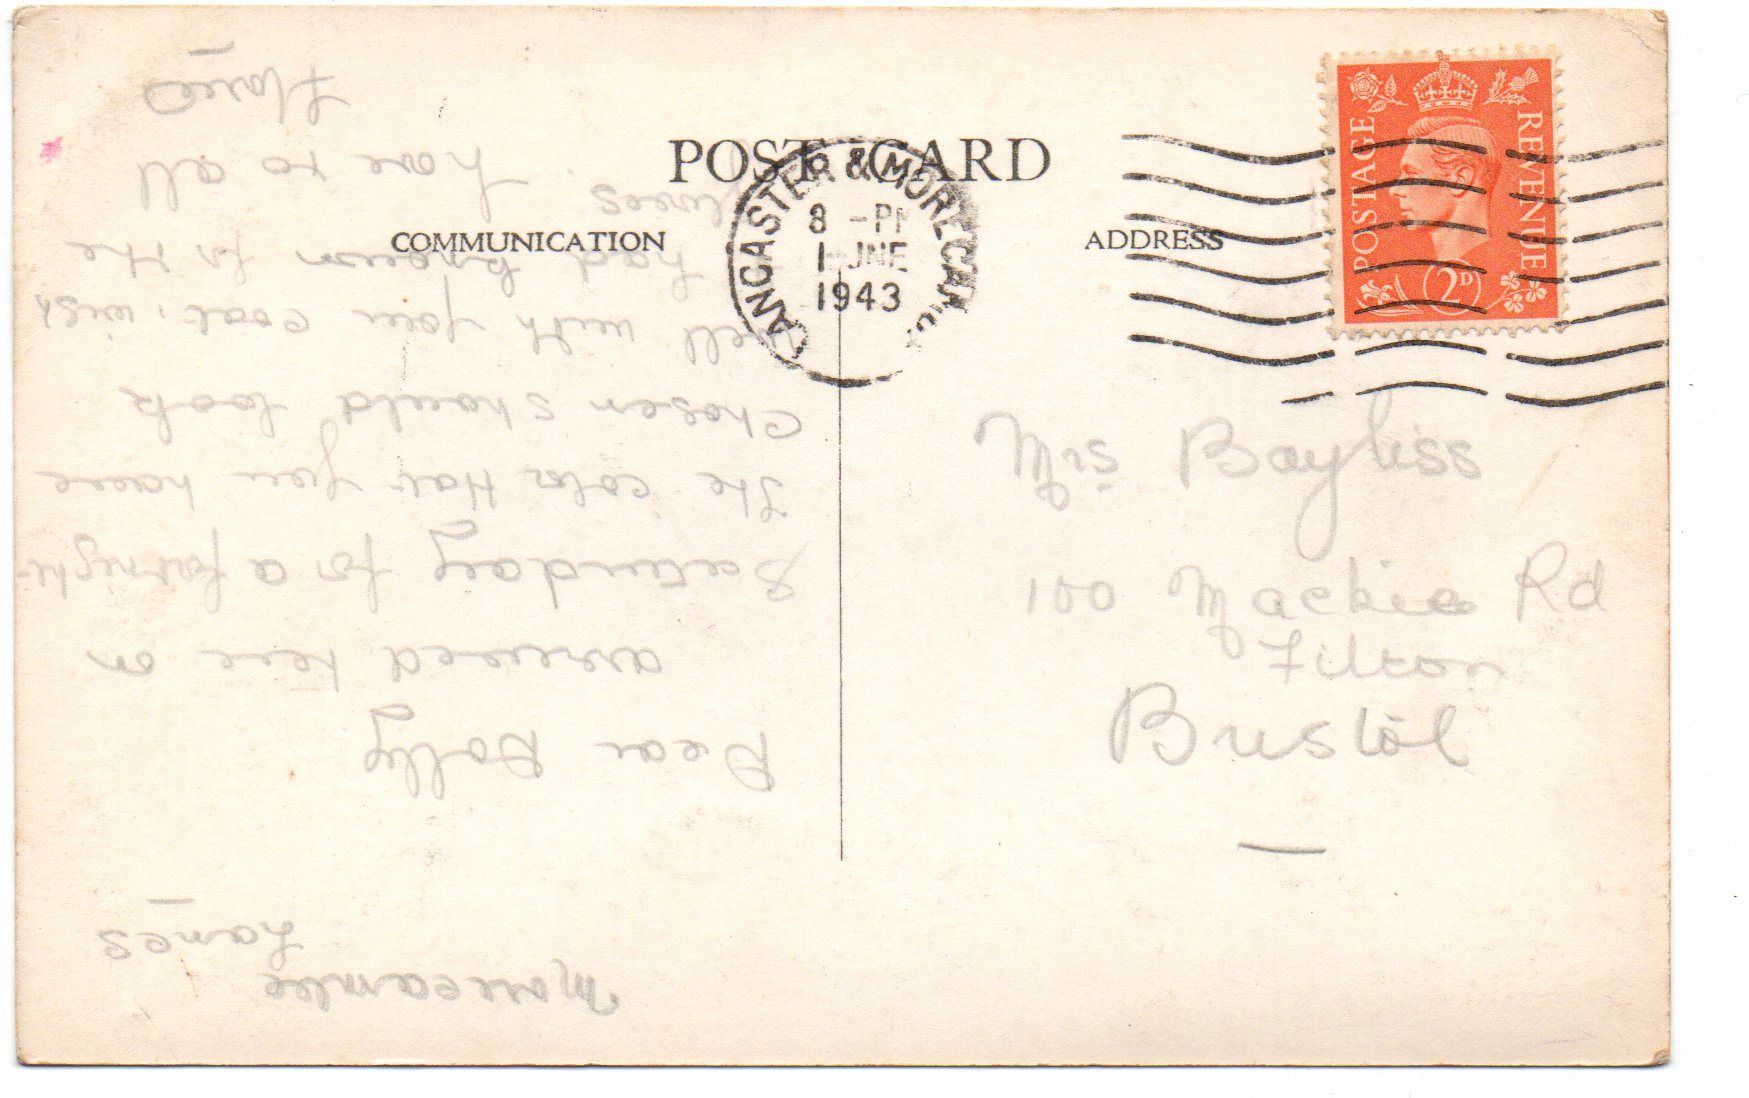 POST CARD
COMMUNICATION
ADDRESS
LANCASTER & MORECAMBE
8 - PM
1 JNE
1943
POSTAGE
REVENUE
2D
Mrs Bayliss
100 Mackie Rd
Filton
Bristol
Morecambe
Lancs
Dear Dolly
arrived here on
Saturday for a fortnight
The color that you have
Chosen should look
well with your coat, wish
had brown for the
Love to all